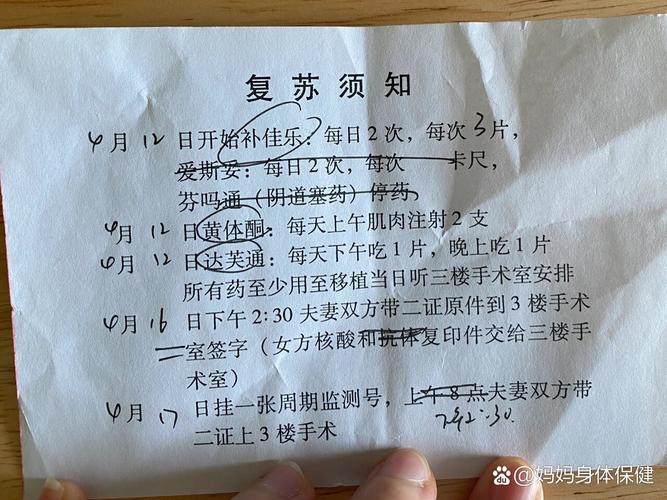 复苏须知
4月12日开始补佳乐：每日2次，每次3片，
爱斯妥：每日2次，每次 卡尺，
芬吗通（阴道塞药）停药，
4月12日黄体酮：每天上午肌肉注射2支
4月12日达芙通：每天下午吃1片，晚上吃1片
所有药至少用至移植当日听三楼手术室安排
4月16日下午2:30夫妻双方带二证原件到3楼手术
室签字（女方核酸和抗体复印件交给三楼手
术室）
4月17日挂一张周期监测号，上午8点夫妻双方带
下午2:30.
二证上3楼手术
@妈妈身体保健